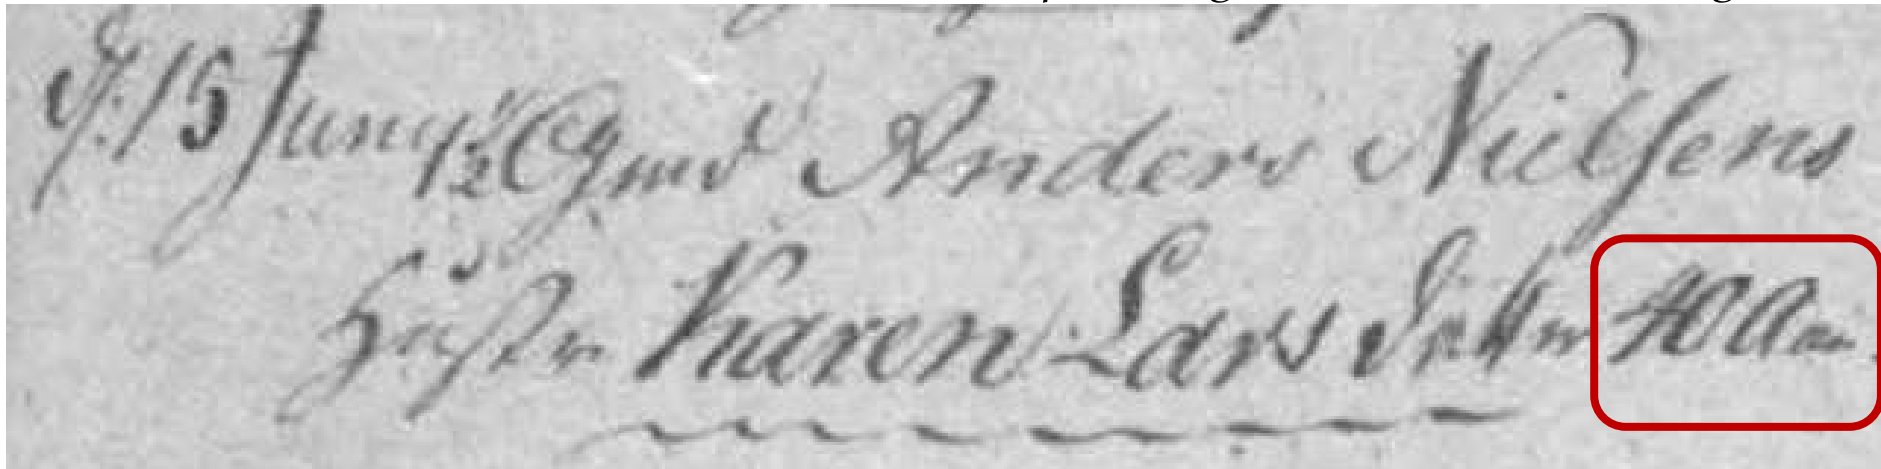 d. 15 Juny ½ Gmd Anders Nielsens
Hustr Karen Lars Datter 40 Aar